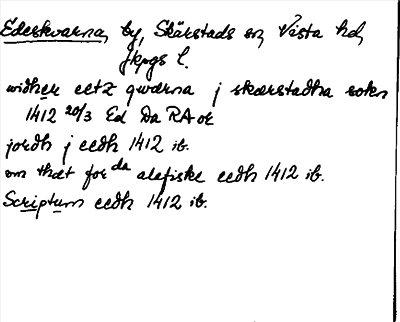 Edeskvarna, by, Skärstads sn, Vista hd,
Jkpgs l.
widher eetz qwærna j skærstadha sokn
1412 20/3 Ed Da RA or
jordh j eedh 1412 ib.
om thæt for da alefiske eedh 1412 ib.
Scriptum eedh 1412 ib.